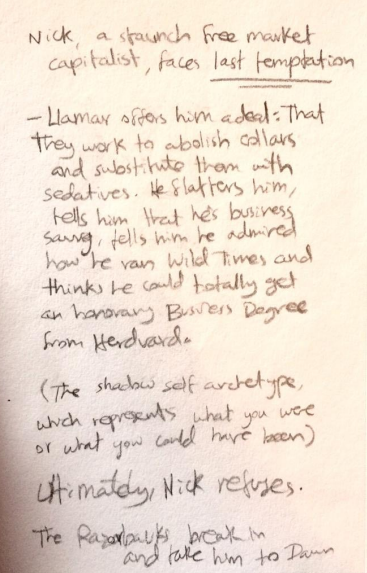 Nick, a staunch free market
capitalist, faces last temptation
- Llamar offers him a deal: That
they work to abolish collars
and substitute them with
sedatives. He flatters him,
tells him that he's business
savvy, tells him he admired
how he ran Wild Times and
thinks he could totally get
an honorary Business Degree
from Herdvard.
(The shadow self archetype,
which represents what you were
or what you could have been)
Ultimately, Nick refuses.
The Razorbacks break in
and take him to Dawn